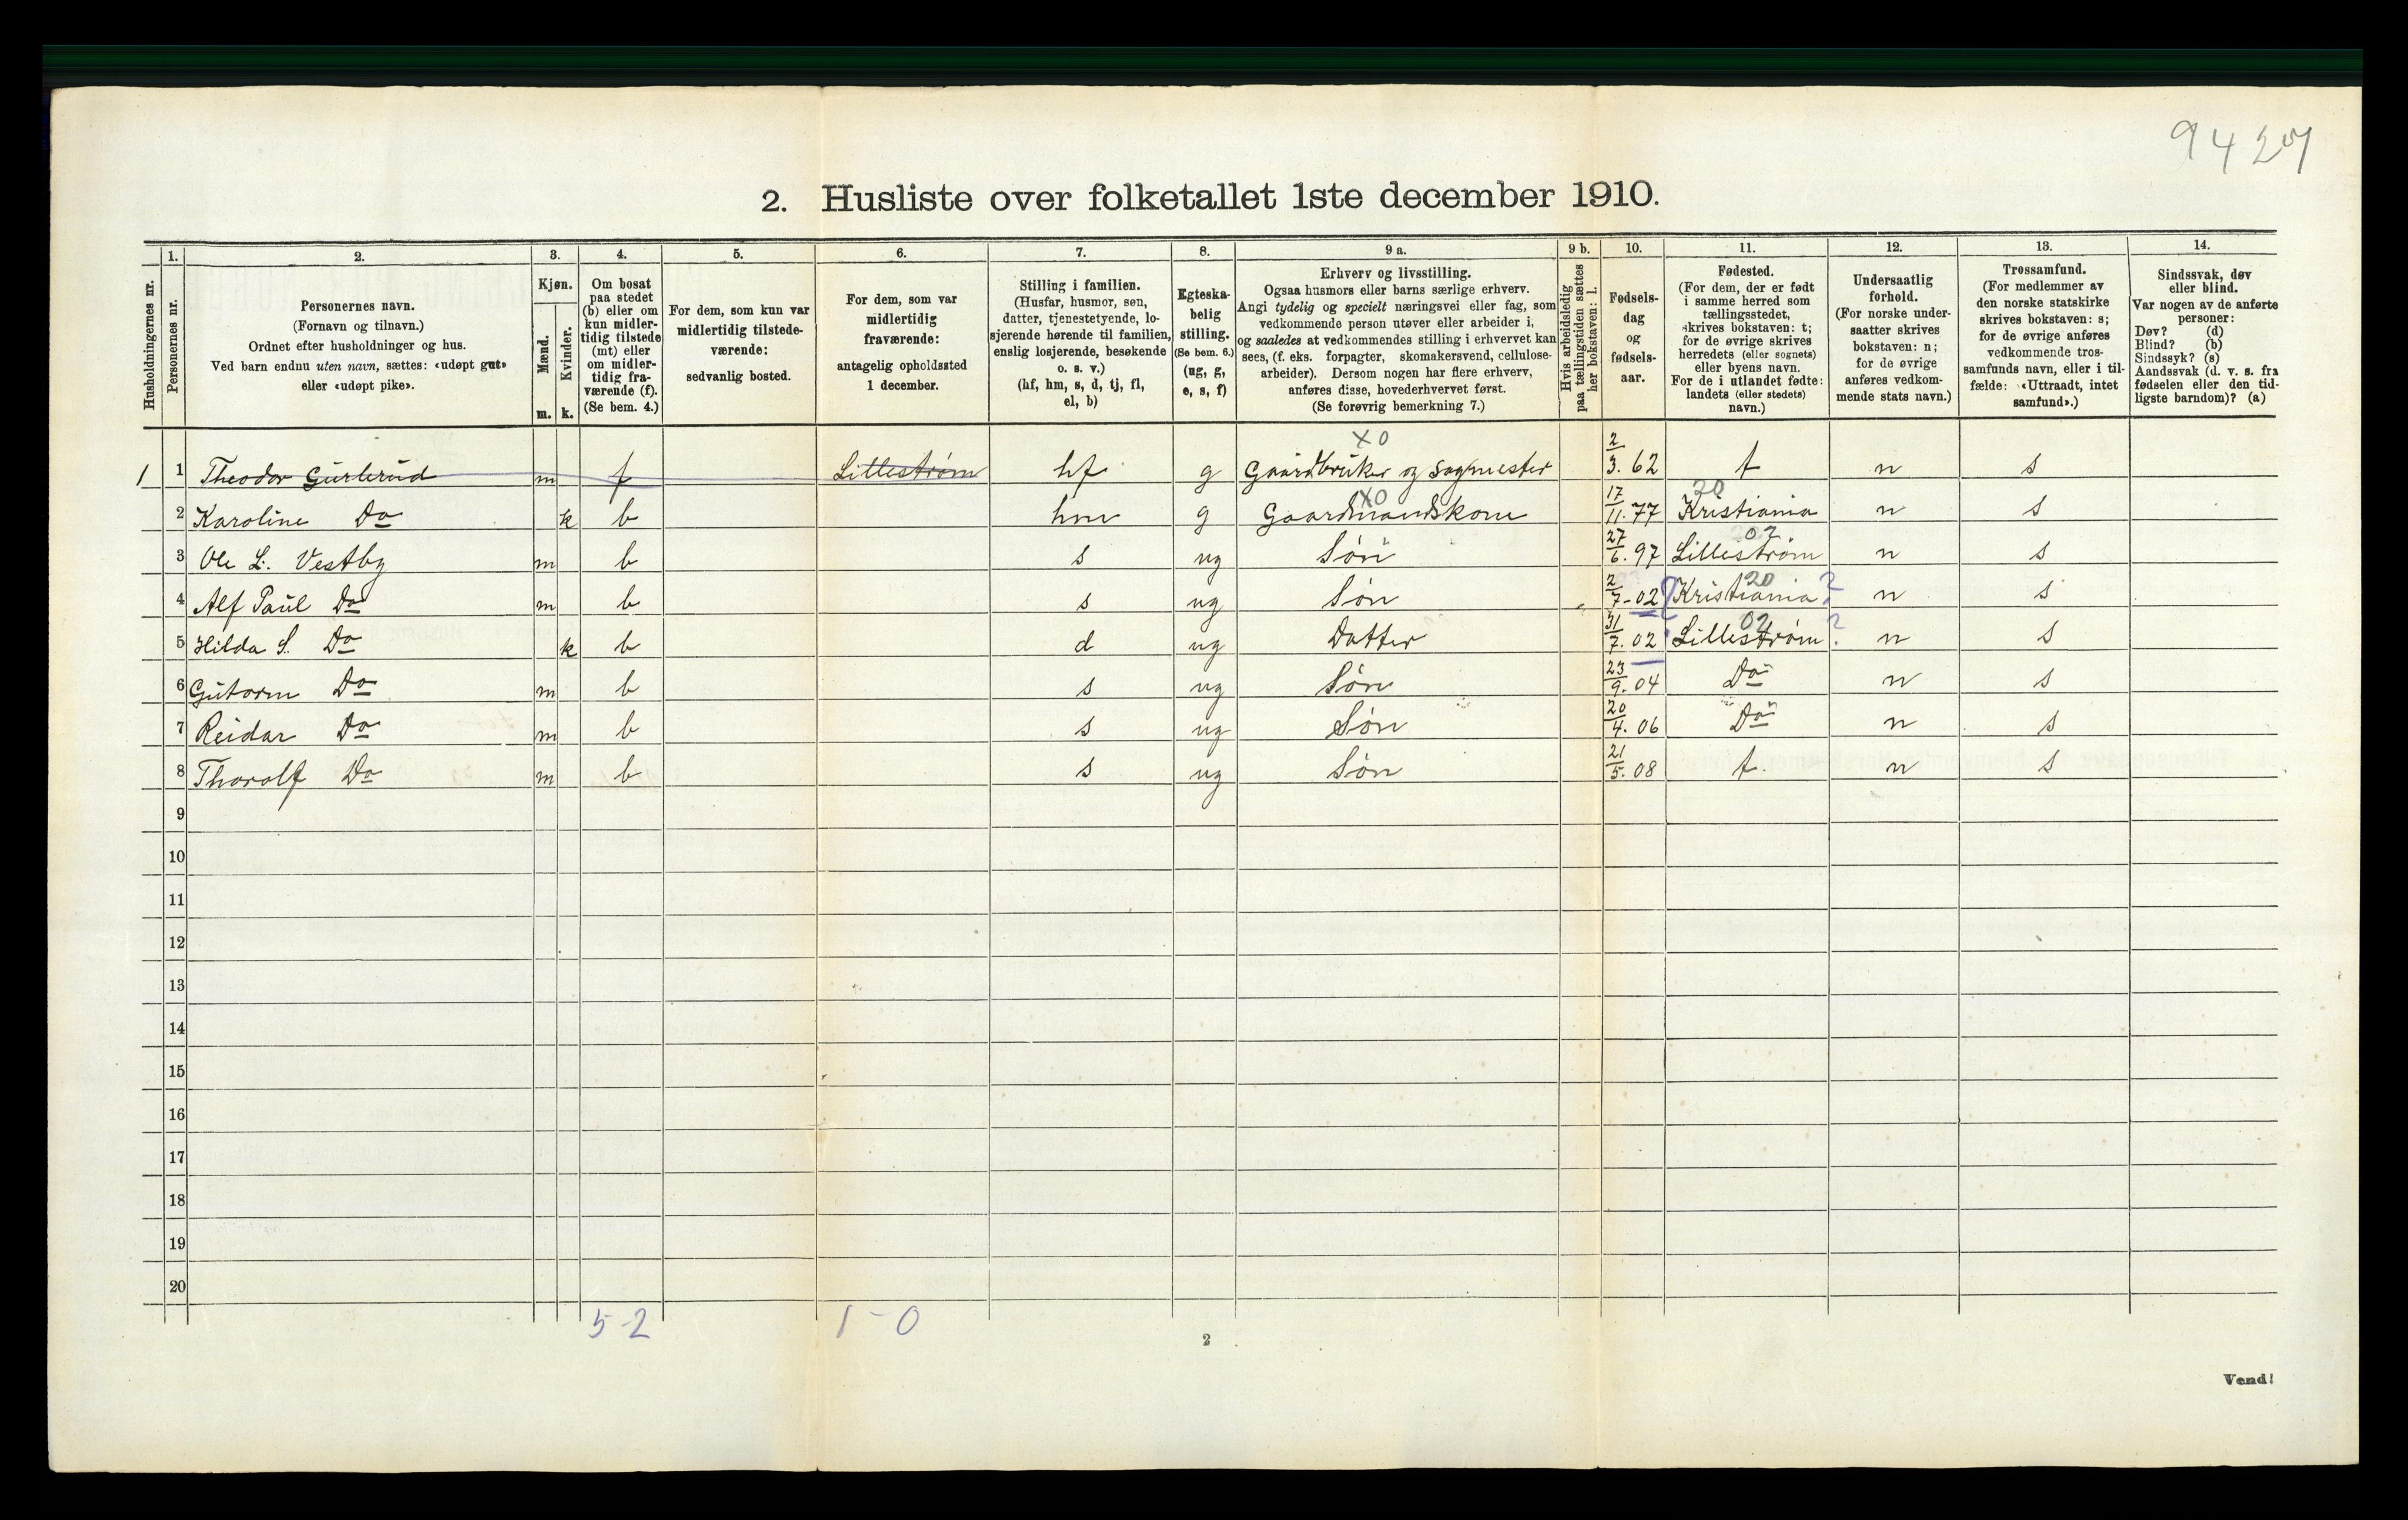 9427
2. Husliste over folketallet 1ste december 1910.
Husholdningernes nr.
1.
Personernes nr.
2.
Personernes navn.
(Fornavn og tilnavn.)
Ordnet efter husholdninger og hus.
Ved barn endnu uten navn, sættes: «udøpt gut»
eller «udøpt pike».
3.
Kjøn.
Mænd.
Kvinder.
m. k.
4.
Om bosat
paa stedet
(b) eller om
kun midler-
tidig tilstede
(mt) eller
om midler-
tidig fra-
værende (f).
(Se bem. 4.)
5.
For dem, som kun var
midlertidig tilstede-
værende:
sedvanlig bosted.
6.
For dem, som var
midlertidig
fraværende:
antagelig opholdssted
1 december.
7.
Stilling i familien.
(Husfar, husmor, søn,
datter, tjenestetyende, lo-
sjerende hørende til familien,
enslig losjerende, besøkende
o. s. v.)
(hf, hm, s, d, tj, fl,
el, b)
8.
Egteska-
belig
stilling.
(Se bem. 6.)
(ug, g,
e, s, f)
9 a.
Erhverv og livsstilling.
Ogsaa husmors eller barns særlige erhverv.
Angi tydelig og specielt næringsvei eller fag, som
vedkommende person utøver eller arbeider i,
og saaledes at vedkommendes stilling i erhvervet kan
sees, (f. eks. forpagter, skomakersvend, cellulose-
arbeider). Dersom nogen har flere erhverv,
anføres disse, hovederhvervet først.
(Se forøvrig bemerkning 7.)
9 b.
Hvis arbeidsledig
paa tællingstiden sættes
her bokstaven: l.
10.
Fødsels-
dag
og
fødsels-
aar.
11.
Fødested.
(For dem, der er født
i samme herred som
tællingsstedet,
skrives bokstaven: t;
for de øvrige skrives
herredets (eller sognets)
eller byens navn.
For de i utlandet fødte:
landets (eller stedets)
navn.)
12.
Undersaatlig
forhold.
(For norske under-
saatter skrives
bokstaven: n;
for de øvrige
anføres vedkom-
mende stats navn.)
13.
Trossamfund.
(For medlemmer av
den norske statskirke
skrives bokstaven: s;
for de øvrige anføres
vedkommende tros-
samfunds navn, eller i til-
fælde: «Uttraadt, intet
samfund».)
14.
Sindssvak, døv
eller blind.
Var nogen av de anførte
personer:
Døv? (d)
Blind? (b)
Sindssyk? (s)
Aandssvak (d. v. s. fra
fødselen eller den tid-
ligste barndom)? (a)
X0
1 1 Theodor m f Lillestrøm hf g Gaardbruker og Sagmester 2/3. 62 t n s
X0 20
2 Karoline Do k b hm g Gaardmandskone 17/11. 77 Kristiania n s
07
3 Ole L. Vestby m b s ug Søn 27/6. 97 Lillestrøm n s
20
4 Alf Paul Do m b s ug Søn 2/7-02 ? Kristiania ? n s
02
5 Hilda S. Do k b d ug Datter 31/7. 02 Lillestrøm ? n s
6 Gutorm Do m b s ug Søn 23/9. 04 Do n s
7 Reidar Do m b s ug Søn 20/4. 06 Do n s
8 Thorolf Do m b s ug Søn 21/5. 08 t. n s
9
10
11
12
13
14
15
16
17
18
19
20
5-2 1-0
2
Vend!